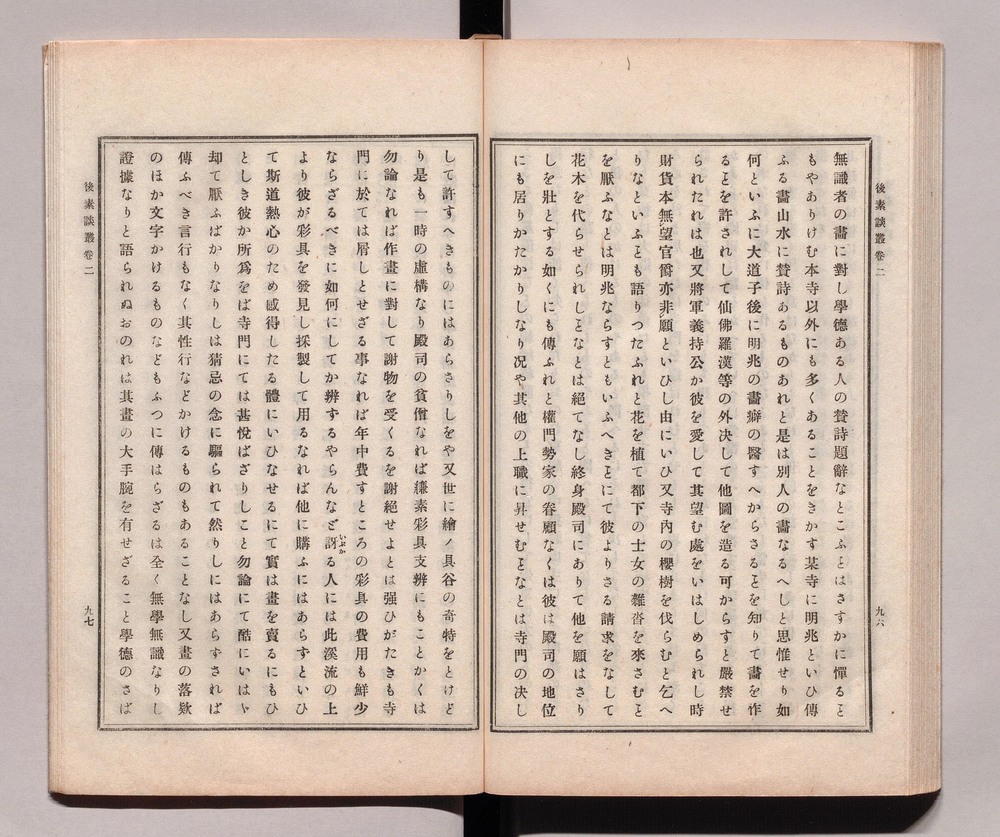 後素談叢卷二
九六
無識者の畵に對し學德ある人の贊詩題辭なとこふとはさすかに憚るヿ
もやありけむ本寺以外にも多くあることをきかす某寺に明兆といひ傳
ふる畵山水に贊詩あるものあれと是は別人の畵なるへしと思惟せり如
何といふに大道子後に明兆の畵癖の醫すへからさるヿを知りて畵を作
るヿを許されして仙佛羅漢等の外决して他圖を造る可からすと嚴禁せ
られたれは也又將軍義持公か彼を愛して其望む處をいはしめられし時
財貨本無望官爵亦非願といひし由にいひ又寺內の櫻樹を伐らむと乞へ
りなといふヿも語りつたふれと花を植て都下の士女の雜沓を來さむヿ
を厭ふなとは明兆ならすともいふへきヿにて彼よりさる請求をなして
花木を代らせられしヿなとは絕てなし終身殿司にありて他を願はさり
しを壯とする如くにも傳ふれと權門勢家の眷顧なくは彼は殿司の地位
にも居りかたかりしなり况や其他の上職に昇せむヿなとは寺門の决し
して許すへきものにはあらさりしをや又世に繪ノ具谷の奇特をとけど
り是も一時の虛構なり殿司の貧僧なれば縑素彩具支辨にもことかくは
勿論なれば作畫に對して謝物を受くるを謝絕せよとは强ひがたきも寺
門に於ては屑しとせざる事なれば年中費すところの彩具の費用も鮮少
ならざるべきに如何にしてか辨ずるやらんなど訝る人には此溪流の上
いぶか
より彼が彩具を發見し採製して用るなれば他に購ふにはあらずといひ
て斯道熱心のため感得したる體にいひなせるにて實は畫を賣るにもひ
としき彼か所爲をば寺門にては甚悅ばざりしこと勿論にて酷にいはヾ
却て厭ふばかりなりしは猜忌の念に驅られて然りしにはあらずされば
傳ふべき言行もなく其性行などかけるものもあることなし又畫の落欵
のほか文字かけるものなどもふつに傳はらざるは全く無學無識なりし
證據なりと語られぬおのれは其畫の大手腕を有せざること學德のさば
後素談叢卷二
九七